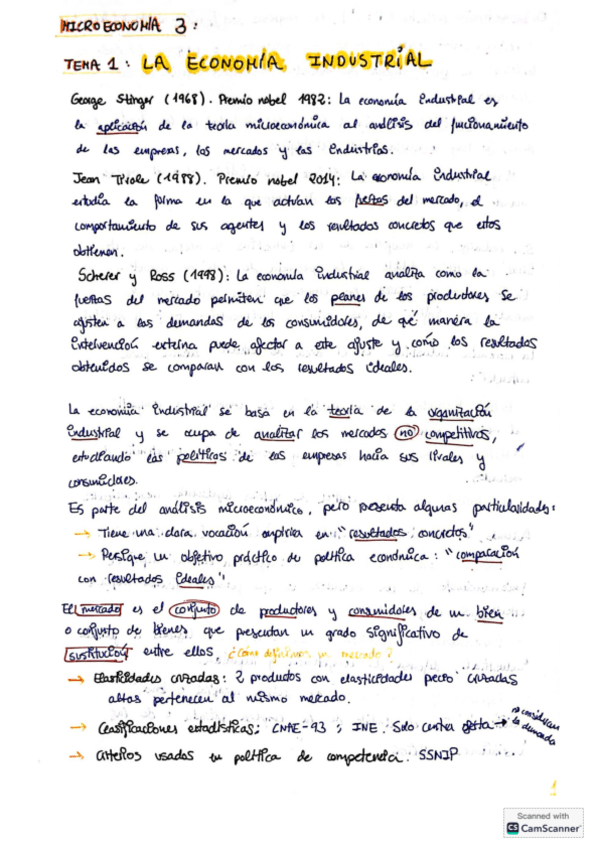 MICROECONOMÍA 3:
TEMA 1: LA ECONOMÍA INDUSTRIAL
George Stinger (1968). Premio nobel 1982: La economía industrial es
la aplicación de la teoría microeconómica al análisis del funcionamiento
de las empresas, los mercados y las industrias.
Jean Tirole (1988). Premio nobel 2014: La economía industrial
estudia la forma en la que actúan las fuerzas del mercado, el
comportamiento de sus agentes y los resultados concretos que estos
obtienen.
Scherer y Ross (1998): La economía industrial analiza como la
fuerzas del mercado permiten que los planes de los productores se
ajusten a las demandas de los consumidores, de qué manera la
intervención externa puede afectar a este ajuste y cómo los resultados
obtenidos se comparan con los resultados ideales.
La economía industrial se basa en la teoría de la organización
industrial y se ocupa de analizar los mercados no competitivos,
estudiando las políticas de las empresas hacia sus rivales y
consumidores.
Es parte del análisis microeconómico, pero presenta algunas particularidades:
→ Tiene una clara vocación empírica en "resultados concretos"
→ Persigue un objetivo práctico de política económica: "comparación
con resultados ideales"
El mercado es el conjunto de productores y consumidores de un bien
o conjunto de bienes que presentan un grado significativo de
sustitución entre ellos. ¿Cómo definimos un mercado?
→ Elasticidades cruzadas: 2 productos con elasticidades precio cruzadas
altas pertenecen al mismo mercado.
→ Clasificaciones estadísticas; CNAE-93; INE. Solo centra oferta → no consideran la demanda
→ Criterios usados en política de competencia. SSNIP
1
Scanned with
CS CamScanner